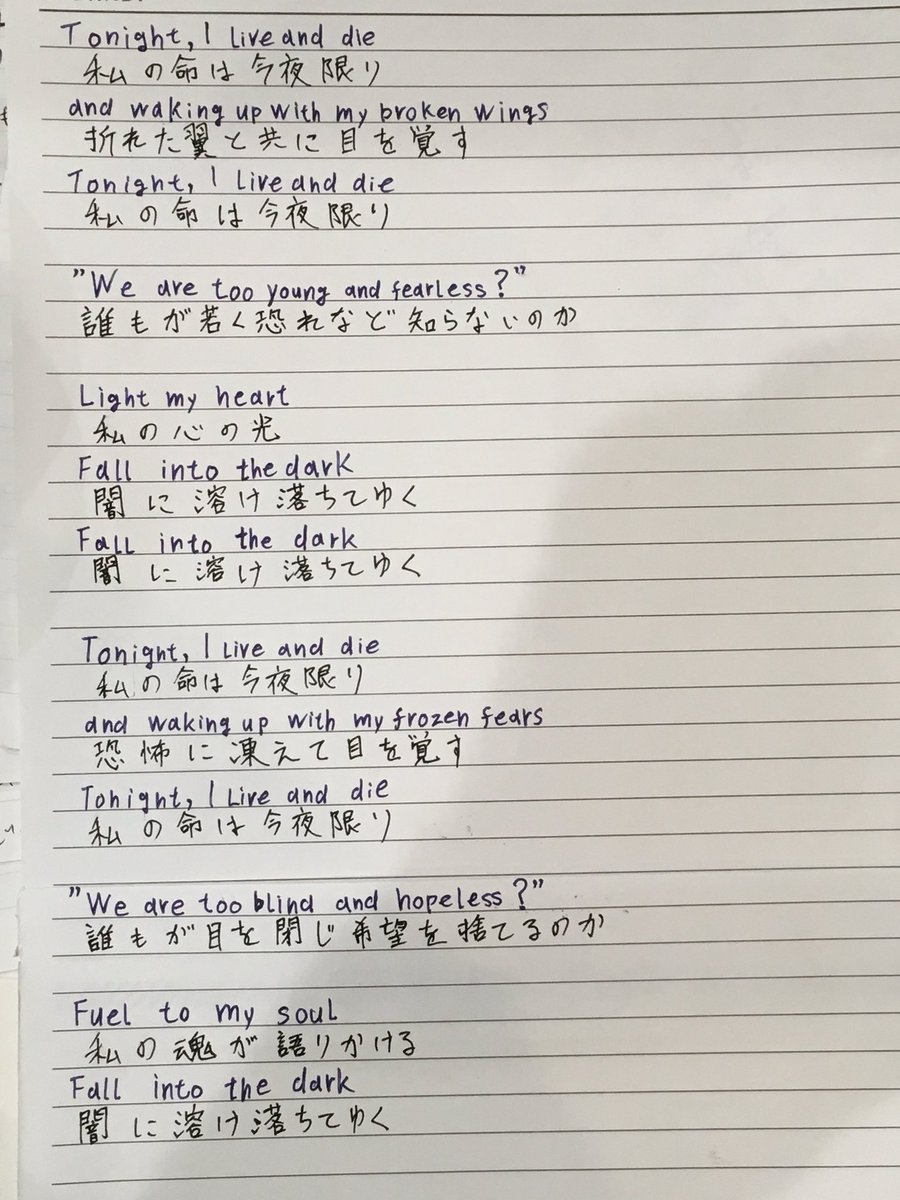 Tonight, I live and die
私の命は今夜限り
and waking up with my broken wings
折れた翼と共に目を覚す
Tonight, I live and die
私の命は今夜限り
"We are too young and fearless?"
誰もが若く恐れなど知らないのか
Light my heart
私の心の光
Fall into the dark
闇に溶け落ちてゆく
Fall into the dark
闇に溶け落ちてゆく
Tonight, I live and die
私の命は今夜限り
and waking up with my frozen fears
恐怖に凍えて目を覚す
Tonight, I live and die
私の命は今夜限り
"We are too blind and hopeless?"
誰もが目を閉じ希望を捨てるのか
Fuel to my soul
私の魂が語りかける
Fall into the dark
闇に溶け落ちてゆく